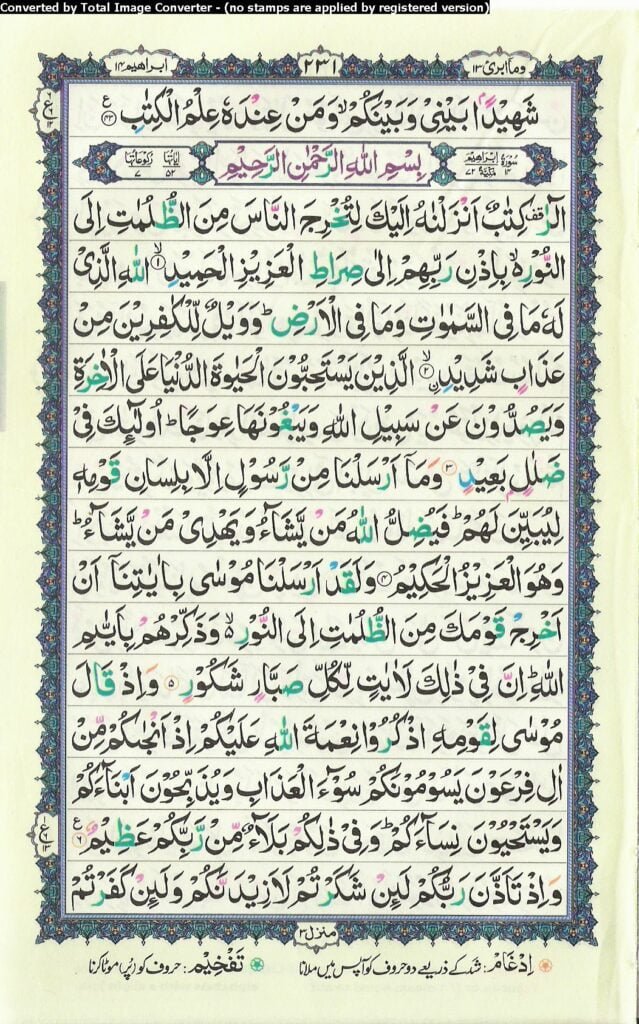 Converted by Total Image Converter - (no stamps are applied by registered version)
ابراهیم ۱۴
۲۳۱
وما ابرئ ۱۳
شَهِيْدًۢا بَيْنِىْ وَبَيْنَكُمْ ۙ وَمَنْ عِنْدَهٗ عِلْمُ الْكِتٰبِ ۴۳
سُوْرَةُ اِبْرٰهِيْمَ ۱۴ مَكِّيَّةٌ ۷۲
بِسْمِ اللّٰهِ الرَّحْمٰنِ الرَّحِيْمِ
اٰيَاتُهَا ۵۲ رُكُوْعَاتُهَا ۷
الٓرٰ ۟ كِتٰبٌ اَنْزَلْنٰهُ اِلَيْكَ لِتُخْرِجَ النَّاسَ مِنَ الظُّلُمٰتِ اِلَى
النُّوْرِ ۙ۬ بِاِذْنِ رَبِّهِمْ اِلٰى صِرَاطِ الْعَزِيْزِ الْحَمِيْدِ ۙ ۱ اللّٰهِ الَّذِىْ
لَهٗ مَا فِى السَّمٰوٰتِ وَمَا فِى الْاَرْضِ ؕ وَوَيْلٌ لِّلْكٰفِرِيْنَ مِنْ
عَذَابٍ شَدِيْدِ ۙ ۲ اۨلَّذِيْنَ يَسْتَحِبُّوْنَ الْحَيٰوةَ الدُّنْيَا عَلَى الْاٰخِرَةِ
وَيَصُدُّوْنَ عَنْ سَبِيْلِ اللّٰهِ وَيَبْغُوْنَهَا عِوَجًا ؕ اُولٰٓئِكَ فِىْ
ضَلٰلٍۢ بَعِيْدٍ ۳ وَمَاۤ اَرْسَلْنَا مِنْ رَّسُوْلٍ اِلَّا بِلِسَانِ قَوْمِهٖ
لِيُبَيِّنَ لَهُمْ ؕ فَيُضِلُّ اللّٰهُ مَنْ يَّشَآءُ وَيَهْدِىْ مَنْ يَّشَآءُ ؕ
وَهُوَ الْعَزِيْزُ الْحَكِيْمُ ۴ وَلَقَدْ اَرْسَلْنَا مُوْسٰى بِاٰيٰتِنَاۤ اَنْ
اَخْرِجْ قَوْمَكَ مِنَ الظُّلُمٰتِ اِلَى النُّوْرِ ۙ۬ وَذَكِّرْهُمْ بِاَيّٰىمِ
اللّٰهِ ؕ اِنَّ فِىْ ذٰلِكَ لَاٰيٰتٍ لِّكُلِّ صَبَّارٍ شَكُوْرٍ ۵ وَاِذْ قَالَ
مُوْسٰى لِقَوْمِهِ اذْكُرُوْا نِعْمَةَ اللّٰهِ عَلَيْكُمْ اِذْ اَنْجٰىكُمْ مِّنْ
اٰلِ فِرْعَوْنَ يَسُوْمُوْنَكُمْ سُوْٓءَ الْعَذَابِ وَيُذَبِّحُوْنَ اَبْنَآءَكُمْ
وَيَسْتَحْيُوْنَ نِسَآءَكُمْ ؕ وَفِىْ ذٰلِكُمْ بَلَآءٌ مِّنْ رَّبِّكُمْ عَظِيْمٌ ۶
وَاِذْ تَاَذَّنَ رَبُّكُمْ لَئِنْ شَكَرْتُمْ لَاَزِيْدَنَّكُمْ وَلَئِنْ كَفَرْتُمْ
منزل ۳
اِدْغَام: شد کے ذریعے دو حروف کو آپس میں ملانا تَفْخِيْم: حروف کو (پُر) موٹا کرنا